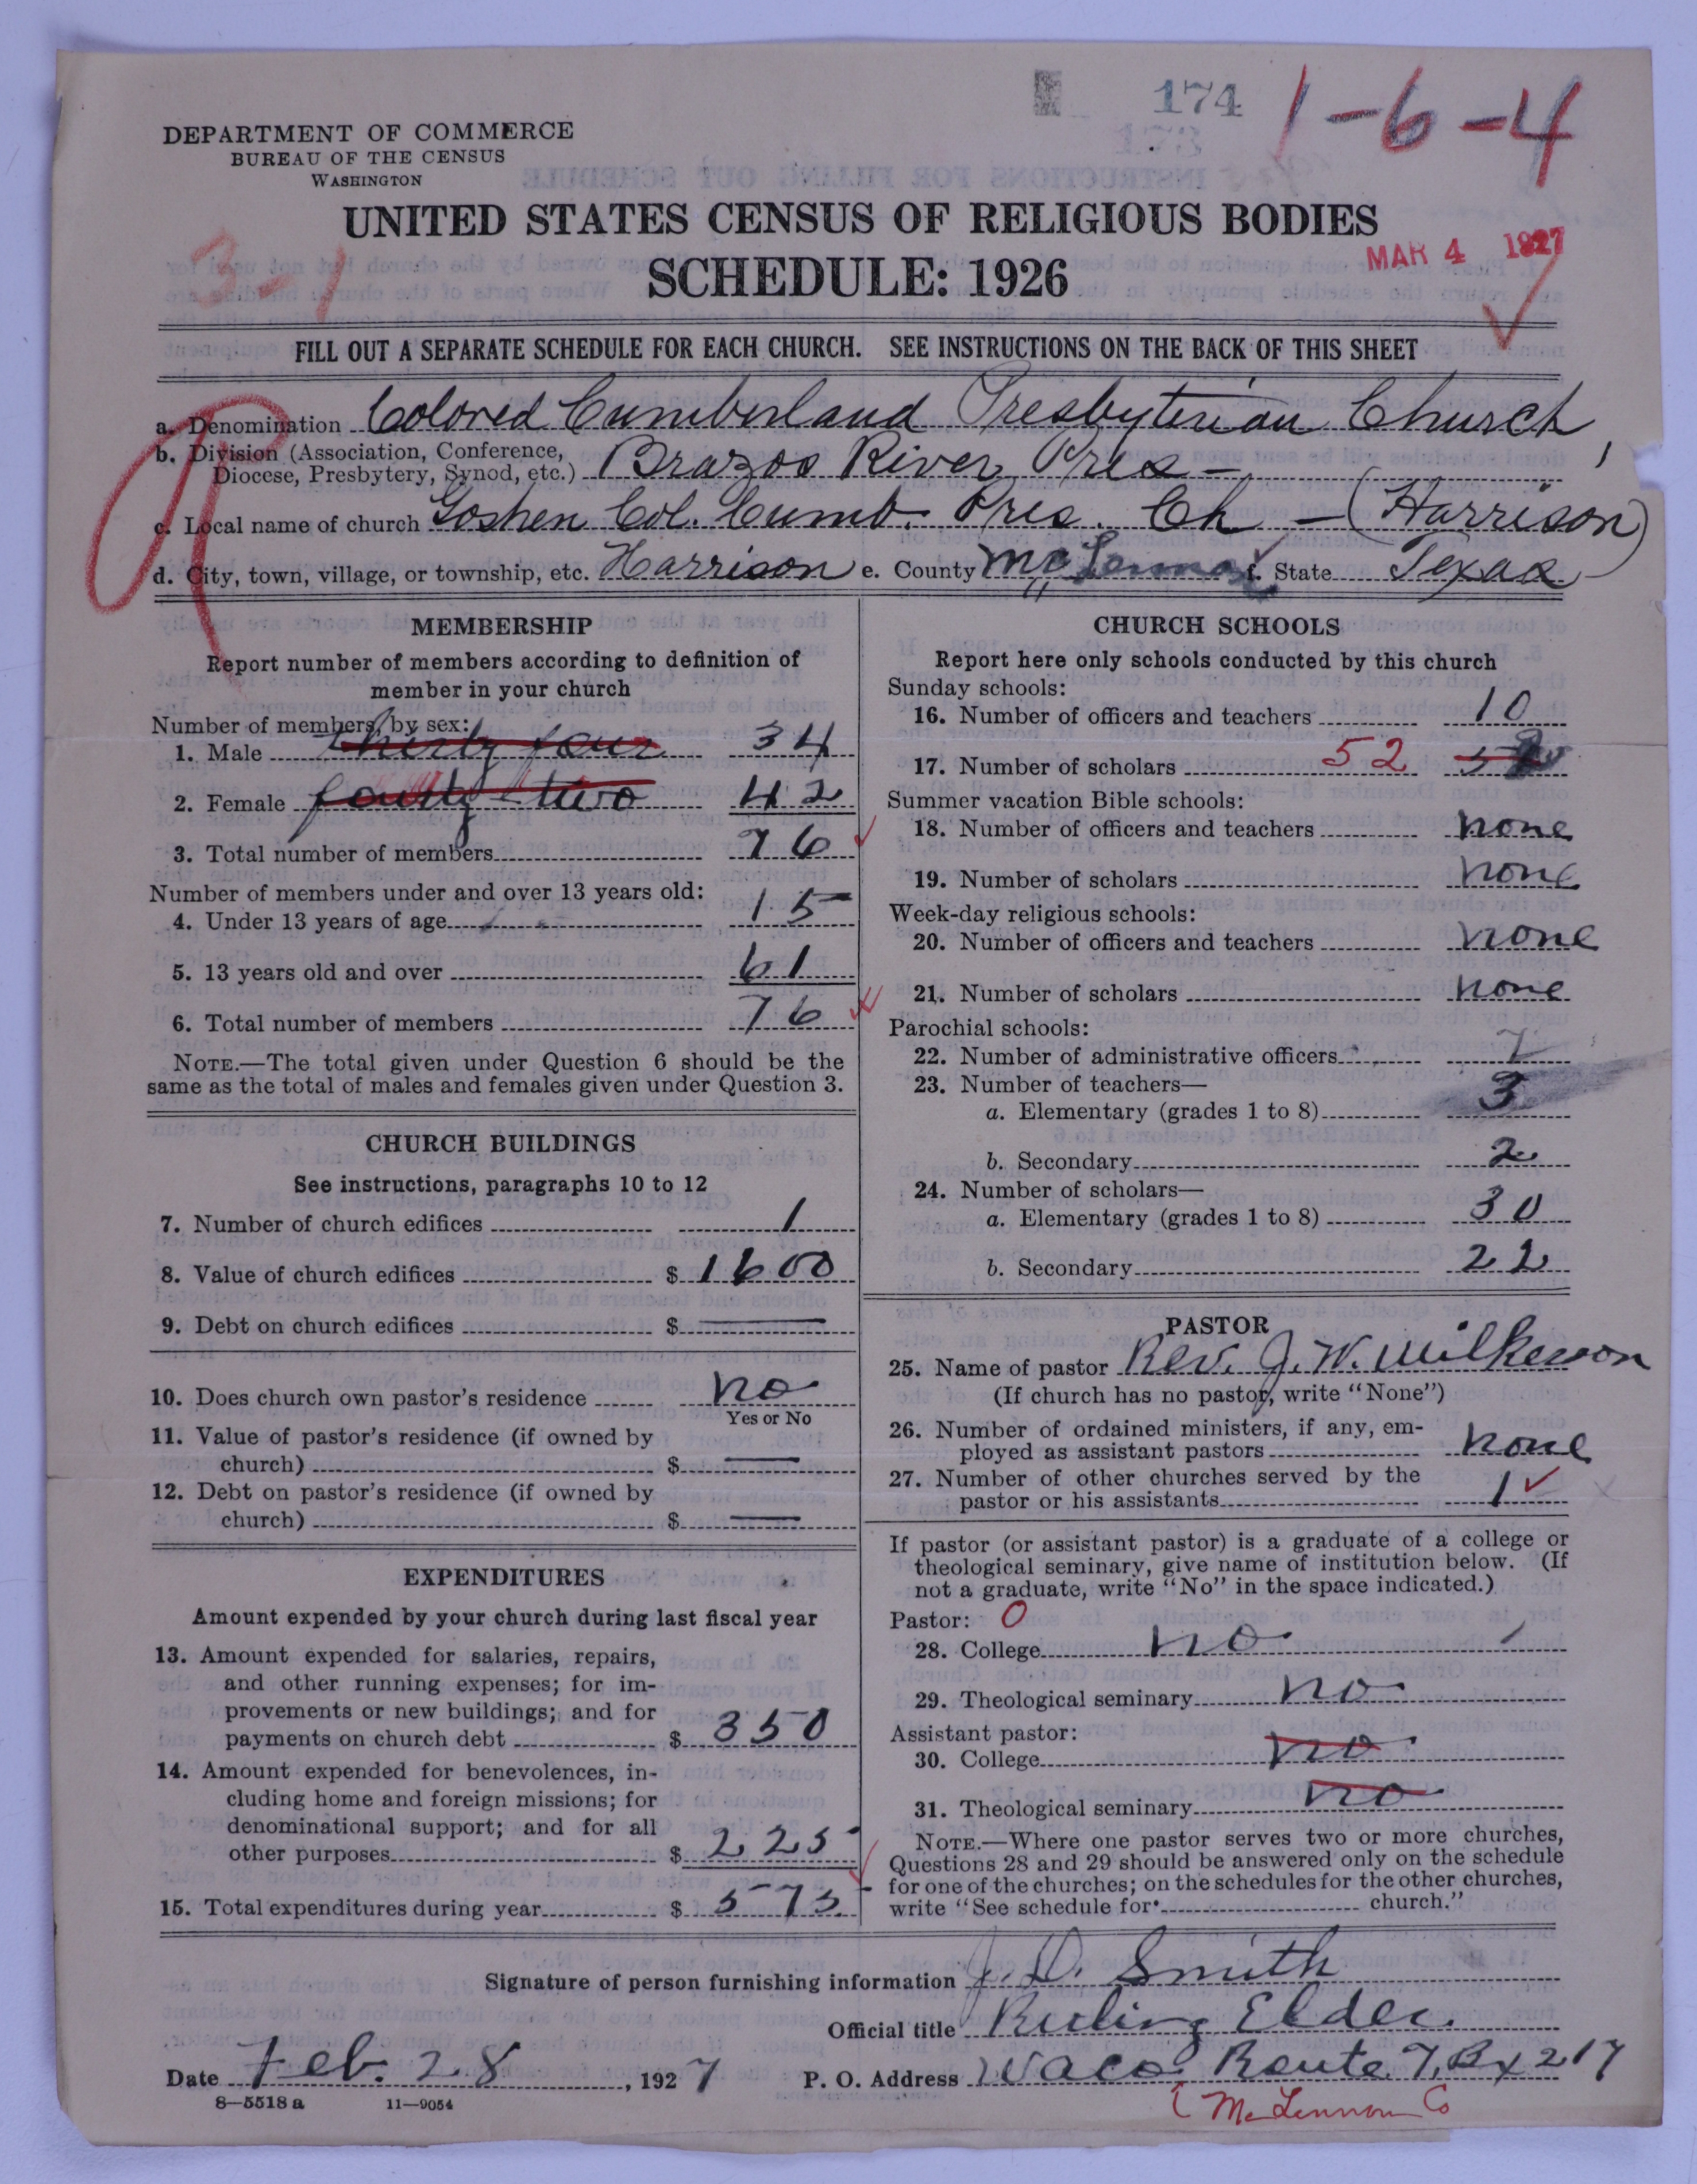 174
173
1-6-4
DEPARTMENT OF COMMERCE
BUREAU OF THE CENSUS
WASHINGTON
UNITED STATES CENSUS OF RELIGIOUS BODIES
3-1
MAR 4 1927
SCHEDULE: 1926
FILL OUT A SEPARATE SCHEDULE FOR EACH CHURCH. SEE INSTRUCTIONS ON THE BACK OF THIS SHEET
a. Denomination Colored Cumberland Presbyterian Church,
b. Division (Association, Conference,
Diocese, Presbytery, Synod, etc.) Brazos River Pres-
c. Local name of church Goshen Col. Cumb. Pres. Ch - (Harrison)
d. City, town, village, or township, etc. Harrison e. County McLennan f. State Texas
MEMBERSHIP
Report number of members according to definition of
member in your church
Number of members by sex:
1. Male thirty four 34
2. Female fourty two 42
3. Total number of members 76
Number of members under and over 13 years old:
4. Under 13 years of age 15
5. 13 years old and over 61
6. Total number of members 76
NOTE.—The total given under Question 6 should be the
same as the total of males and females given under Question 3.
CHURCH BUILDINGS
See instructions, paragraphs 10 to 12
7. Number of church edifices 1
8. Value of church edifices $ 1600
9. Debt on church edifices $ —
10. Does church own pastor's residence no
Yes or No
11. Value of pastor's residence (if owned by
church) $ —
12. Debt on pastor's residence (if owned by
church) $ —
EXPENDITURES
Amount expended by your church during last fiscal year
13. Amount expended for salaries, repairs,
and other running expenses; for im-
provements or new buildings; and for
payments on church debt $ 350
14. Amount expended for benevolences, in-
cluding home and foreign missions; for
denominational support; and for all
other purposes $ 225
15. Total expenditures during year $ 575
CHURCH SCHOOLS
Report here only schools conducted by this church
Sunday schools:
16. Number of officers and teachers 10
17. Number of scholars 52
Summer vacation Bible schools:
18. Number of officers and teachers none
19. Number of scholars none
Week-day religious schools:
20. Number of officers and teachers none
21. Number of scholars none
Parochial schools:
22. Number of administrative officers 7
23. Number of teachers—
a. Elementary (grades 1 to 8) 3
b. Secondary 2
24. Number of scholars—
a. Elementary (grades 1 to 8) 30
b. Secondary 22
PASTOR
25. Name of pastor Rev. J. W. Wilkerson
(If church has no pastor, write "None")
26. Number of ordained ministers, if any, em-
ployed as assistant pastors none
27. Number of other churches served by the
pastor or his assistants 1
If pastor (or assistant pastor) is a graduate of a college or
theological seminary, give name of institution below. (If
not a graduate, write "No" in the space indicated.)
Pastor: 0
28. College no
29. Theological seminary no
Assistant pastor:
30. College no
31. Theological seminary no
NOTE.—Where one pastor serves two or more churches,
Questions 28 and 29 should be answered only on the schedule
for one of the churches; on the schedules for the other churches,
write "See schedule for church."
Signature of person furnishing information J. D. Smith
Official title Ruling Elder.
Date Feb. 28, 1927 P. O. Address Waco Route 7, Bx 217
8—5518a 11—9054
(McLennon Co